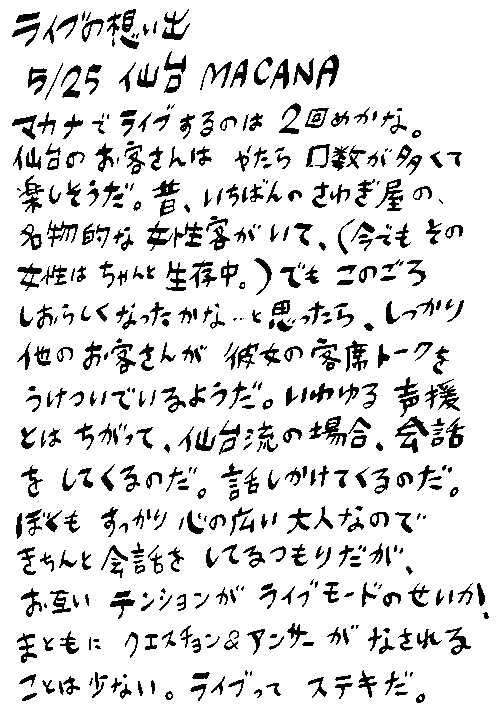 ライブの想い出
5/25 仙台 MACANA
マカナでライブするのは 2回めかな。
仙台のお客さんは やたら口数が多くて
楽しそうだ。昔、いちばんのさわぎ屋の、
名物的な女性客がいて、(今でもその
女性はちゃんと生存中。)でもこのごろ
しおらしくなったかな…と思ったら、しっかり
他のお客さんが 彼女の客席トークを
うけついでいるようだ。いわゆる声援
とはちがって、仙台流の場合、会話
をしてくるのだ。話しかけてくるのだ。
ぼくも すっかり心の広い大人なので
きちんと会話を してるつもりだが、
お互い テンションが ライブモードのせいか!
まともに クエスチョン&アンサーが なされる
ことは少ない。ライブって ステキだ。